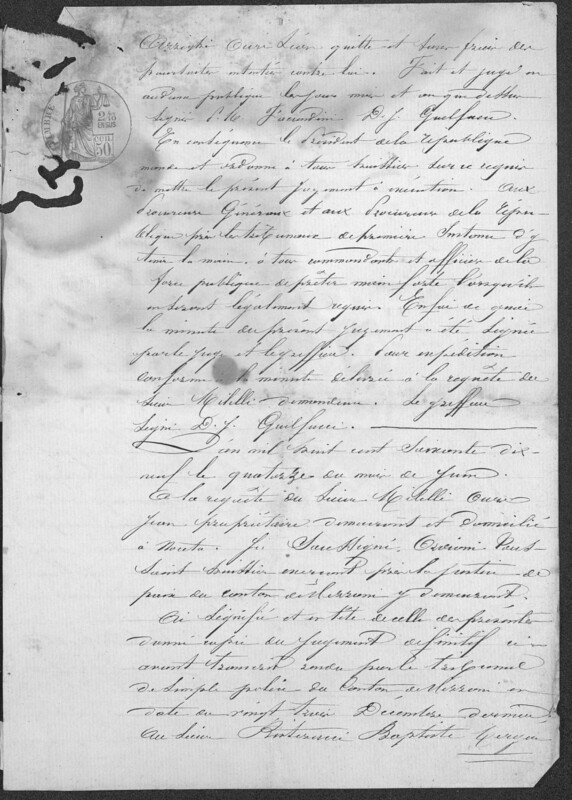 Arrighi Ours Léon quitte et sans frais des
poursuites intentées contre lui. Fait et jugé en
audience publique les jour mois et an que dessus
Signé M. Secondin D. J. Guelfucci.
En conséquence le Président de la République
mande et ordonne à tous huissiers sur ce requis
de mettre le présent Jugement à exécution. Aux
Procureurs Généraux et aux Procureurs de la Répu-
blique près les tribunaux de première Instance d'y
tenir la main. à tous commandants et officiers de la
force publique de prêter main forte lorsqu'ils
en seront légalement requis. En foi de quoi
la minute du présent Jugement a été signée
par le Juge et le greffier. Pour expédition
conforme la minute délivrée à la requête du
Sieur Mitelli demandeur. Le greffier
Signé D. J. Guelfucci.
L'an mil huit cent soixante dix-
neuf le quatorze du mois de Juin.
A la requête du Sieur Mitelli Ours
Jean propriétaire demeurant et domicilié
à Noceta. Je Soussigné,
huissier exerçant près la Justice de
paix du canton de Vezzani y demeurant.
Ai signifié et en tête de celle des présentes
donné copie du Jugement définitif ci-
avant transcrit rendu par le tribunal
de Simple police du Canton de Vezzani en
date du vingt trois Décembre dernier
Au Sieur Baptiste
2/10
EN SUS
50